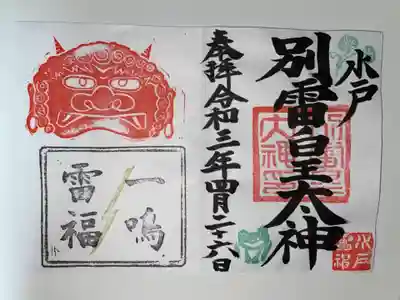 水戸
別雷皇太神
奉拝令和三年四月二十六日
一鳴
雷福
水戸
雷神